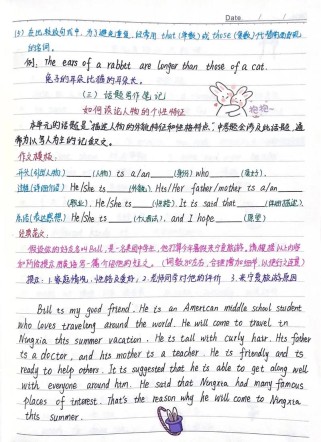 Date
(3) 在比较级句式中，为了避免重复，经常用 that (单数) 或 those (复数) 代替前面出现
的名词。
例. The ears of a rabbit are longer than those of a cat.
兔子的耳朵比猫的耳朵长。
(三) 话题写作笔记
如何谈论人物的个性特征
抱抱~
本单元的话题是"描述人物的外貌特征和性格特点"，中考题会涉及此话题，通
常为以写人为主的记叙文。
作文模板:
开头(介绍人物) ____(人物) is a/an ____(身份) who ____(喜好).
过程(详细介绍) He/She is ____(外貌). His/Her father/mother is a/an ____
(职业). He/She is ____(性格). It is said that ____(具体描述).
总结(表达感想) He/She is ____(个人表现), and I hope ____(愿望)
经典范文.
假设你的好友名叫Bill, 是一名美国中学生, 他打算今年暑假来宁夏旅游。请根据以上内容
和所给提示用英语写一篇介绍他的短文。(词数80左右, 合理增加细节, 以使行文连贯)
提示: 1. 家庭情况, 性格及爱好; 2. 老师同学对他的评价 3. 来宁夏旅游原因
Bill is my good friend. He is an American middle school student
who loves traveling around the world. He will come to travel in
Ningxia this summer vacation. He is tall with curly hair. His father
is a doctor, and his mother is a teacher. He is friendly and is
ready to help others. It is suggested that he is able to get along well
with everyone around him. He said that Ningxia had many famous
places of interest. That's the reason why he will come to Ningxia
this summer.